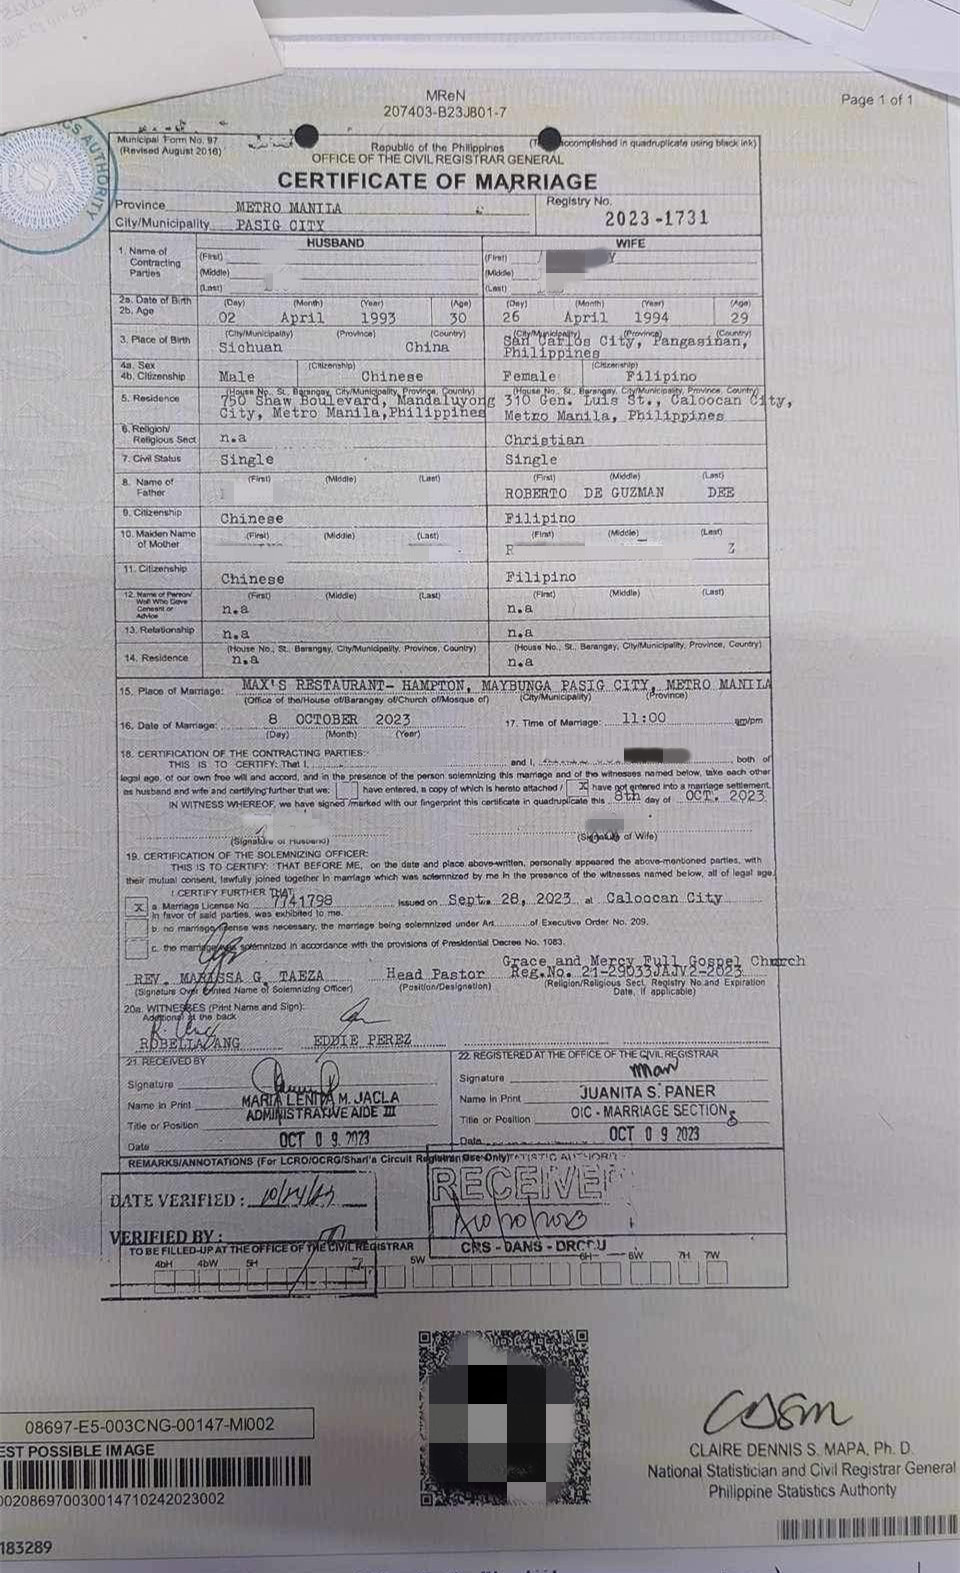 MReN
207403-B23J801-7
Page 1 of 1
Municipal Form No. 97
(Revised August 2016)
Republic of the Philippines
accomplished in quadruplicate using black ink)
OFFICE OF THE CIVIL REGISTRAR GENERAL
CERTIFICATE OF MARRIAGE
Province METRO MANILA
City/Municipality PASIG CITY
Registry No.
2023-1731
HUSBAND WIFE
1. Name of Contracting Parties
(First) (First)
(Middle) (Middle)
(Last) (Last)
2a. Date of Birth
2b. Age
(Day) (Month) (Year) (Age) (Day) (Month) (Year) (Age)
02 April 1993 30 26 April 1994 29
3. Place of Birth
(City/Municipality) (Province) (Country) (City/Municipality) (Province) (Country)
Sichuan China San Carlos City, Pangasinan,
Philippines
4a. Sex
4b. Citizenship
(Citizenship) (Citizenship)
Male Chinese Female Filipino
5. Residence
(House No., St., Barangay, City/Municipality, Province, Country) (House No., St., Barangay, City/Municipality, Province, Country)
750 Shaw Boulevard, Mandaluyong 310 Gen. Luis St., Caloocan City,
City, Metro Manila,Philippines Metro Manila, Philippines
6. Religion/
Religious Sect
n.a Christian
7. Civil Status Single Single
8. Name of
Father
(First) (Middle) (Last) (First) (Middle) (Last)
ROBERTO DE GUZMAN DEE
9. Citizenship Chinese Filipino
10. Maiden Name
of Mother
(First) (Middle) (Last) (First) (Middle) (Last)
R Z
11. Citizenship Chinese Filipino
12. Name of Person/
Wali Who Gave
Consent or
Advice
(First) (Middle) (Last) (First) (Middle) (Last)
n.a n.a
13. Relationship n.a n.a
14. Residence
(House No., St., Barangay, City/Municipality, Province, Country) (House No., St., Barangay, City/Municipality, Province, Country)
n.a n.a
15. Place of Marriage: MAX'S RESTAURANT- HAMPTON, MAYBUNGA PASIG CITY, METRO MANILA
(Office of the/House of/Barangay of/Church of/Mosque of) (City/Municipality) (Province)
16. Date of Marriage: 8 OCTOBER 2023 17. Time of Marriage: 11:00 am/pm
(Day) (Month) (Year)
18. CERTIFICATION OF THE CONTRACTING PARTIES:
THIS IS TO CERTIFY: That I, and I, both of
legal age, of our own free will and accord, and in the presence of the person solemnizing this marriage and of the witnesses named below, take each other
as husband and wife and certifying further that we: have entered, a copy of which is hereto attached / X have not entered into a marriage settlement.
IN WITNESS WHEREOF, we have signed /marked with our fingerprint this certificate in quadruplicate this 8th day of OCT. 2023
(Signature of Husband) (Signature of Wife)
19. CERTIFICATION OF THE SOLEMNIZING OFFICER:
THIS IS TO CERTIFY: THAT BEFORE ME, on the date and place above-written, personally appeared the above-mentioned parties, with
their mutual consent, lawfully joined together in marriage which was solemnized by me in the presence of the witnesses named below, all of legal age.
I CERTIFY FURTHER THAT
X a. Marriage License No 7741798 issued on Sept. 28, 2023 at Caloocan City
in favor of said parties, was exhibited to me.
b. no marriage license was necessary, the marriage being solemnized under Art. of Executive Order No. 209.
c. the marriage was solemnized in accordance with the provisions of Presidential Decree No. 1083.
Grace and Mercy Full Gospel Church
REV. MARISSA G. TAEZA Head Pastor Reg.No. 21-29033JAJV2-2023
(Signature Over Printed Name of Solemnizing Officer) (Position/Designation) (Religion/Religious Sect, Registry No.and Expiration
Date, if applicable)
20a. WITNESSES (Print Name and Sign):
Additional at the back
ROBELLA ANG EDDIE PEREZ
21. RECEIVED BY 22. REGISTERED AT THE OFFICE OF THE CIVIL REGISTRAR
Signature Signature
Name in Print MARIA LENITA M. JACLA Name in Print JUANITA S. PANER
Title or Position ADMINISTRATIVE AIDE III Title or Position OIC - MARRIAGE SECTION
Date OCT 09 2023 Date OCT 09 2023
REMARKS/ANNOTATIONS (For LCRO/OCRG/Shari'a Circuit Registrar Use Only)
RECEIVED
DATE VERIFIED :
10/20/2023
VERIFIED BY :
CRS - DANS - DRCDU
TO BE FILLED-UP AT THE OFFICE OF THE CIVIL REGISTRAR
4bH 4bW 5H 5W 6H 6W 7H 7W
08697-E5-003CNG-00147-MI002
EST POSSIBLE IMAGE
002086970030014710242023002
183289
CLAIRE DENNIS S. MAPA, Ph. D.
National Statistician and Civil Registrar General
Philippine Statistics Authority
PSA
CS AUTHORITY